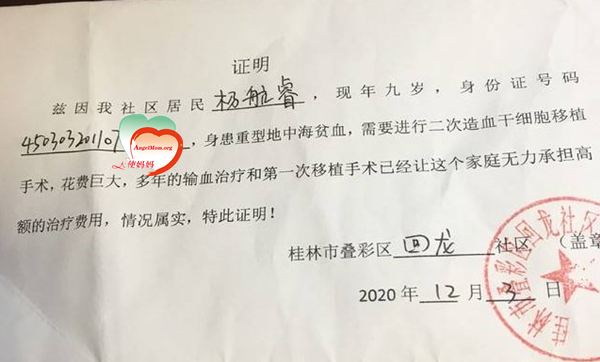 证明
兹因我社区居民杨航睿，现年九岁，身份证号码
45030320110，身患重型地中海贫血，需要进行二次造血干细胞移植
AngelMom.org
天使妈妈
手术，花费巨大，多年的输血治疗和第一次移植手术已经让这个家庭无力承担高
额的治疗费用，情况属实，特此证明！
桂林市叠彩区回龙社区（盖章
2020年12月3日
桂林市叠彩区回龙社区